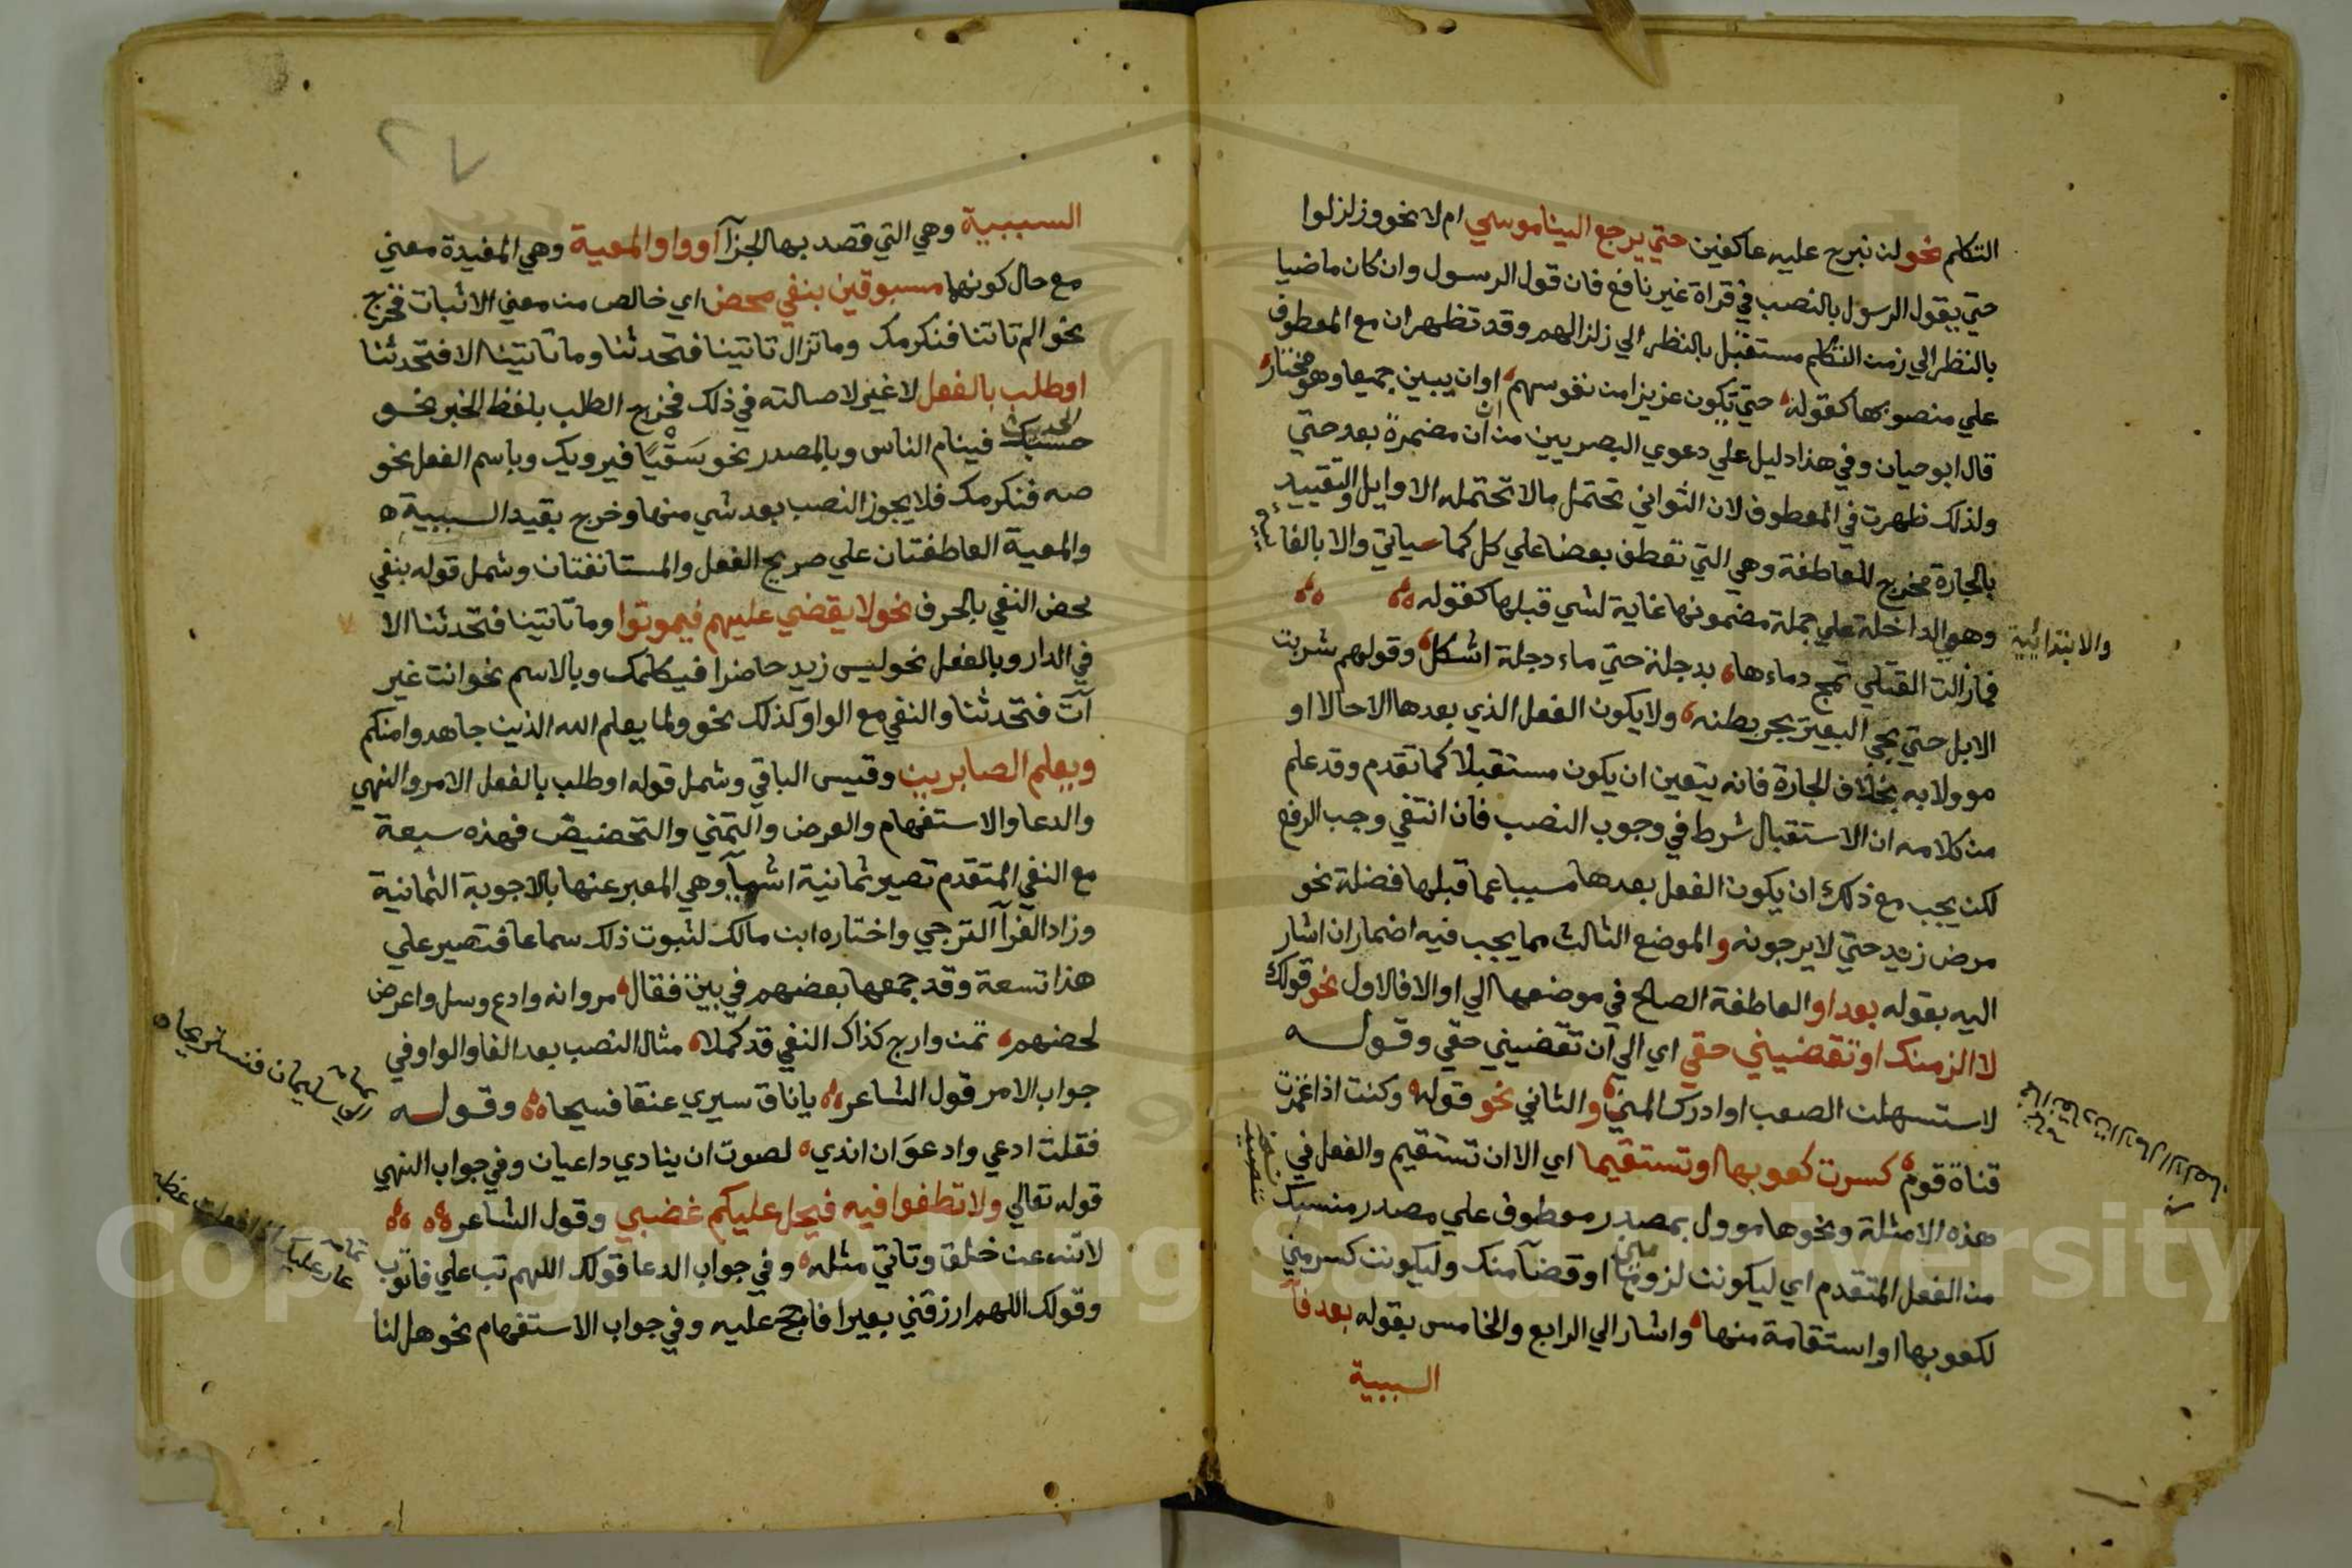 التكلم نحو لن نبرح عليه عاكفين حتي يرجع الينا موسي ام لا نحو وزلزلوا
حتي يقول الرسول بالنصب في قراة غير نافع فان قول الرسول وان كان ماضيا
بالنظر الي زمن التكلم مستقبل بالنظر الي زلزالهم وقد تظهر ان مع المعطوف
علي منصوبها كقوله حتي تكون عزيزا من نفوسهم او ان يبين جميعا وهو مختار
قال ابو حيان وفي هذا دليل علي دعوي البصريين من ان ان مضمرة بعد حتي
ولذلك ظهرت في المعطوف لان الثواني تحتمل ما لا تحتمله الاوايل والتقييد
بالجارة مخرج للعاطفة وهي التي تعطف بعضا علي كل كما سياتي والا بالفا
والابتدائية
وهي الداخلة علي جملة مضمونها غاية لشي قبلها كقوله
فما زالت القتلي تمج دماءها بدجلة حتي ماء دجلة اشكل وقولهم شربت
الابل حتي يجي البعير يجر بطنه ولا يكون الفعل الذي بعدها الا حالا او
موولا به بخلاف الجارة فانه يتعين ان يكون مستقبلا كما تقدم وقد علم
من كلامه ان الاستقبال شرط في وجوب النصب فان انتفي وجب الرفع
لكن يجب مع ذلك ان يكون الفعل بعدها مسببا عما قبلها فضلة نحو
مرض زيد حتي لا يرجونه والموضع الثالث مما يجب فيه اضمار ان اشار
اليه بقوله بعد او العاطفة الصالح في موضعها الي او الا فالاول نحو قولك
لا الزمنك او تقضيني حقي اي الي ان تقضيني حقي وقوله
لاستسهلن الصعب او ادرك المني والثاني نحو قوله وكنت اذا غمزت
قناة قوم كسرت كعوبها او تستقيما اي الا ان تستقيم والفعل في
هذه الامثلة ونحوها موول بمصدر معطوف علي مصدر منسبك
من الفعل المتقدم اي ليكونن لزوم مني او قضآ منك وليكونن كسر مني
لكعوبها او استقامة منها واشار الي الرابع والخامس بقوله بعد فآ
السببية
٢٧
السببية وهي التي قصد بها الجزآ او واو المعية وهي المفيدة معني
مع حال كونهما مسبوقين بنفي محض اي خالص من معني الاثبات فخرج
نحو الم تاتنا فنكرمك وما تزال تاتينا فتحدثنا وما تاتينا الا فتحدثنا
او طلب بالفعل لا غير لاصالته في ذلك فخرج الطلب بلفظ الخبر نحو
حسبك الحديث فينام الناس وبالمصدر نحو سَقْيًا فيرويك وباسم الفعل نحو
صه فنكرمك فلا يجوز النصب بعد شي منها وخرج بقيد السببية
والمعية العاطفتان علي صريح الفعل والمستانفتان وشمل قوله بنفي
محض النفي بالحرف نحو لا يقضي عليهم فيموتوا وما تاتينا فتحدثنا الا
في الدار وبالفعل نحو ليس زيد حاضرا فيكلمك وبالاسم نحو انت غير
آت فتحدثنا والنفي مع الواو كذلك نحو ولما يعلم الله الذين جاهدوا منكم
ويعلم الصابرين وقيس الباقي وشمل قوله او طلب بالفعل الامر والنهي
والدعا والاستفهام والعرض والتمني والتحضيض فهذه سبعة
مع النفي المتقدم تصير ثمانية اشيآ وهي المعبر عنها بالاجوبة الثمانية
وزاد الفرآ الترجي واختاره ابن مالك لثبوت ذلك سماعا فتصير علي
هذا تسعة وقد جمعها بعضهم في بيت فقال مر وانه وادع وسل واعرض
لحضهم تمن وارج كذاك النفي قد كملا مثال النصب بعد الفا والواو في
جواب الامر قول الشاعر يا ناق سيري عنقا فسيحا وقوله
الي سليمان فنستريحا
فقلت ادعي وادعوَ ان اندي لصوت ان ينادي داعيان وفي جواب النهي
قوله تعالي ولا تطغوا فيه فيحل عليكم غضبي وقول الشاعر
لا تنه عن خلق وتاتي مثله وفي جواب الدعا قولك اللهم تب علي فاتوب
عار عليك اذا فعلت عظيم
وقولك اللهم ارزقني بعيرا فاحج عليه وفي جواب الاستفهام نحو هل لنا
Copyright © King Saud University